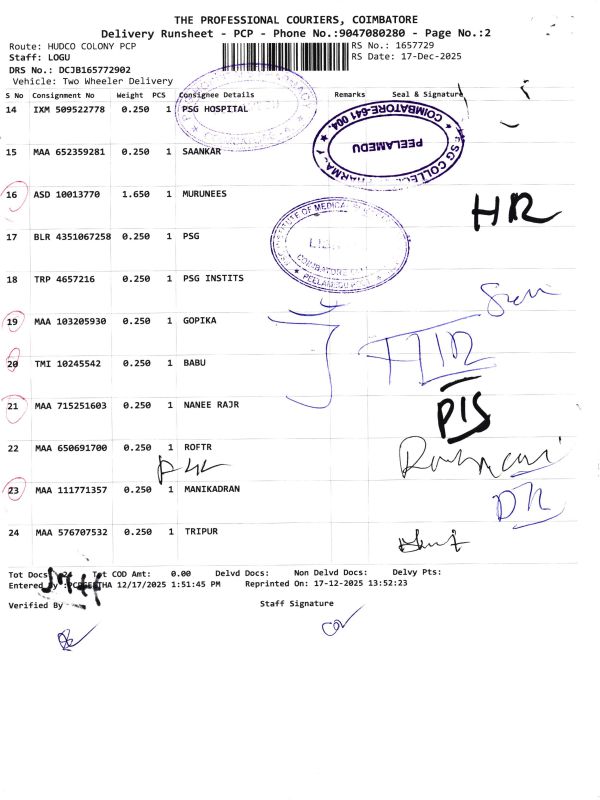 THE PROFESSIONAL COURIERS, COIMBATORE
Delivery Runsheet - PCP - Phone No.:9047080280 - Page No.:2
Route: HUDCO COLONY PCP RS No.: 1657729
Staff: LOGU RS Date: 17-Dec-2025
DRS No.: DCJB165772902
Vehicle: Two Wheeler Delivery
S No Consignment No Weight PCS Consignee Details Remarks Seal & Signature
14 IXM 509522778 0.250 1 PSG HOSPITAL
COIMBATORE-641 004.
PEELAMEDU
PSG COLLEGE
15 MAA 652359281 0.250 1 SAANKAR
16 ASD 10013770 1.650 1 MURUNEES
HR
INSTITUTE OF MEDICAL
COIMBATORE
PEELAMEDU
17 BLR 4351067258 0.250 1 PSG
18 TRP 4657216 0.250 1 PSG INSTITS
19 MAA 103205930 0.250 1 GOPIKA
20 TMI 10245542 0.250 1 BABU
21 MAA 715251603 0.250 1 NANEE RAJR
PIS
22 MAA 650691700 0.250 1 ROFTR
23 MAA 111771357 0.250 1 MANIKADRAN
24 MAA 576707532 0.250 1 TRIPUR
Tot Docs: 24 Tot COD Amt: 0.00 Delvd Docs: Non Delvd Docs: Delvy Pts:
Entered By 12/17/2025 1:51:45 PM Reprinted On: 17-12-2025 13:52:23
Verified By Staff Signature